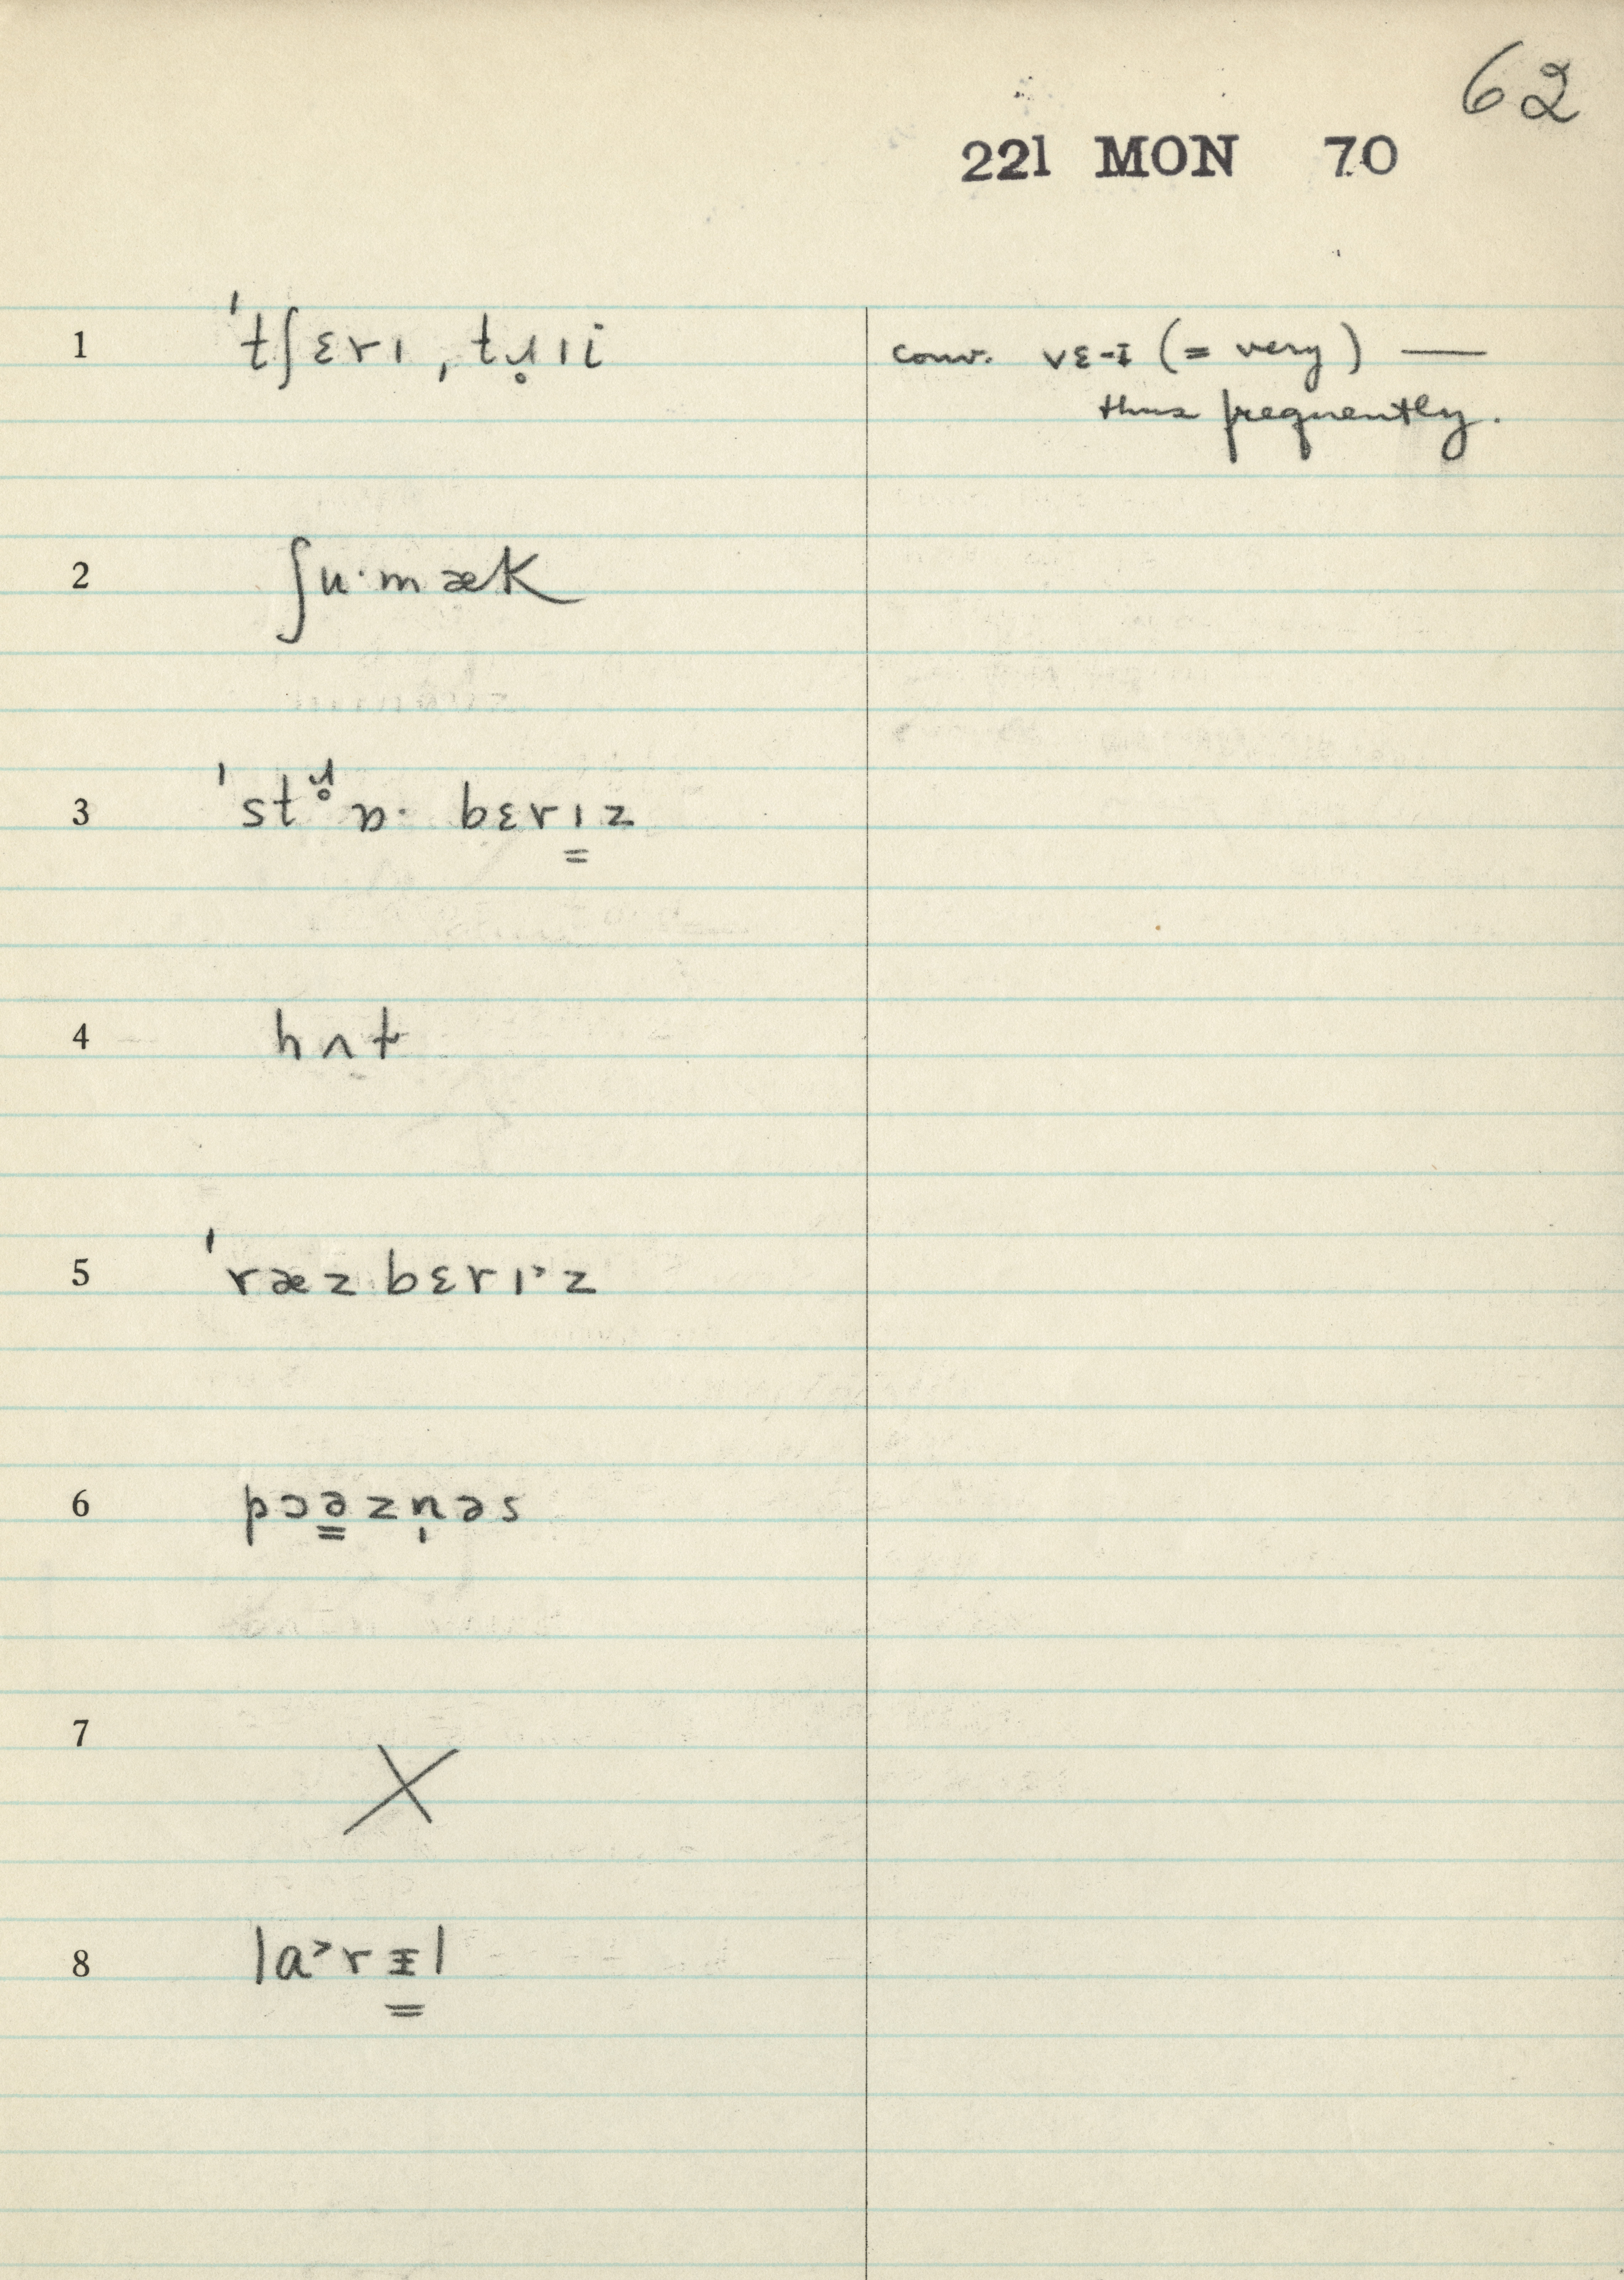 62
221 MON 70
1 ˈtʃɛrɪ, tɹ̥ɪi conv. vɛ-ɪ (= very) —
thus frequently.
2 ʃuˑmæk
3 ˈstɹ̥ɒˑ bɛrɪ̳z
4 hʌt
5 ˈræzbɛrɪ˃z
6 pɔə̳zn̩əs
7 X
8 laʳ˃rɪ̳l